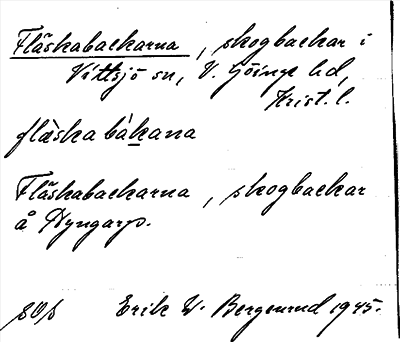 Fläskabackarna, skogbackar i
Vittsjö sn, V. Göinge hd,
Krist. l.
flæska bàkana
Fläskabackarna, skogbackar
å Nyngarp.
Erik W. Bergenrud 1945.